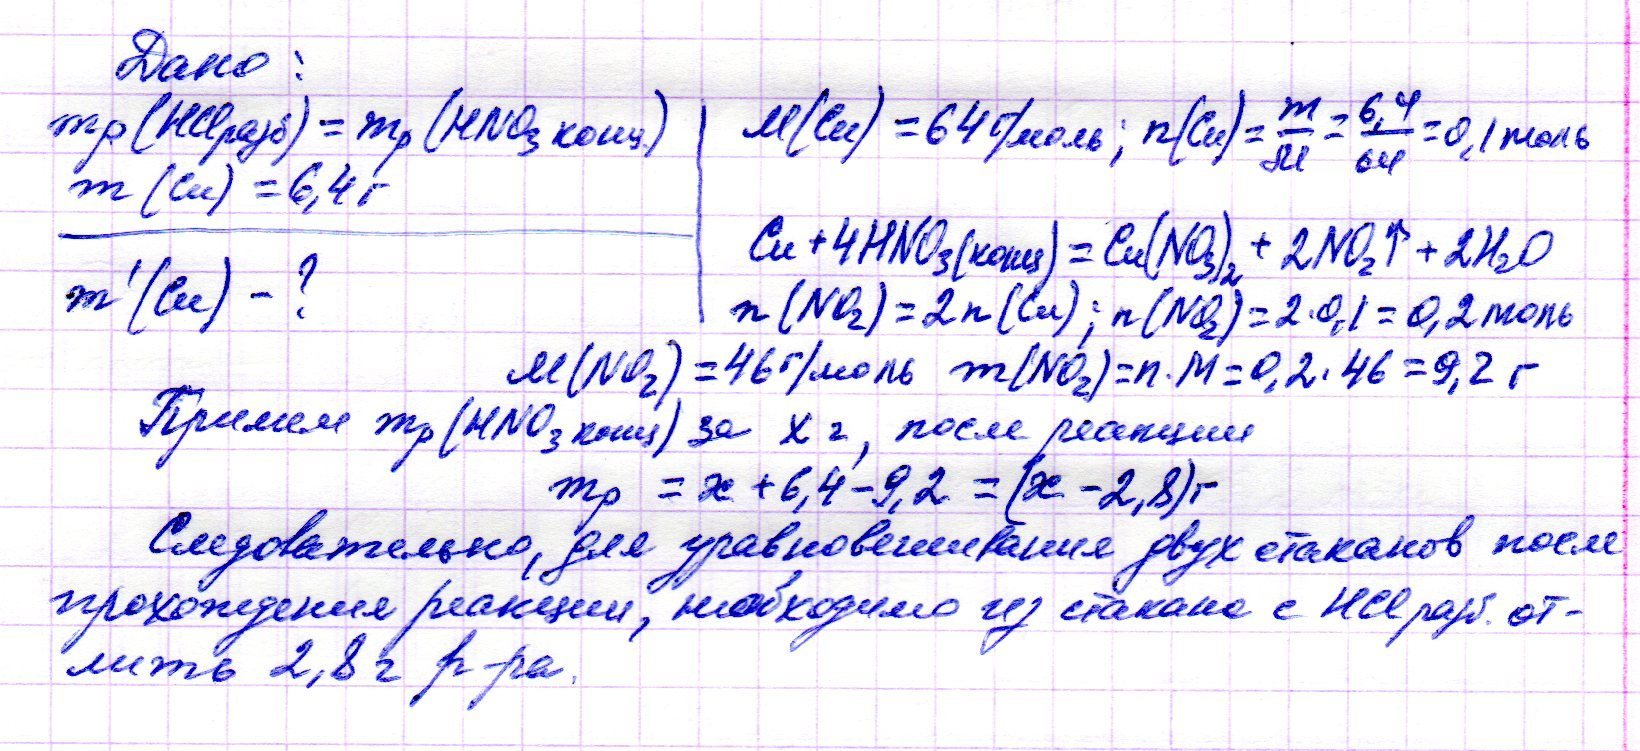 Дано:
mр(HClразб) = mр(HNO₃ конц.)
m(Cu) = 6,4 г
m'(Cu) - ?
M(Cu) = 64 г/моль; n(Cu) = m/M = 6,4/64 = 0,1 моль
Cu + 4HNO₃(конц) = Cu(NO₃)₂ + 2NO₂↑ + 2H₂O
n(NO₂) = 2n(Cu); n(NO₂) = 2·0,1 = 0,2 моль
M(NO₂) = 46 г/моль m(NO₂) = n·M = 0,2·46 = 9,2 г
Примем mр(HNO₃ конц) за x г, после реакции
mр = x + 6,4 - 9,2 = (x - 2,8) г
Следовательно, для уравновешивания двух стаканов после
прохождения реакции, необходимо из стакана с HCl разб. от-
лить 2,8 г р-ра.